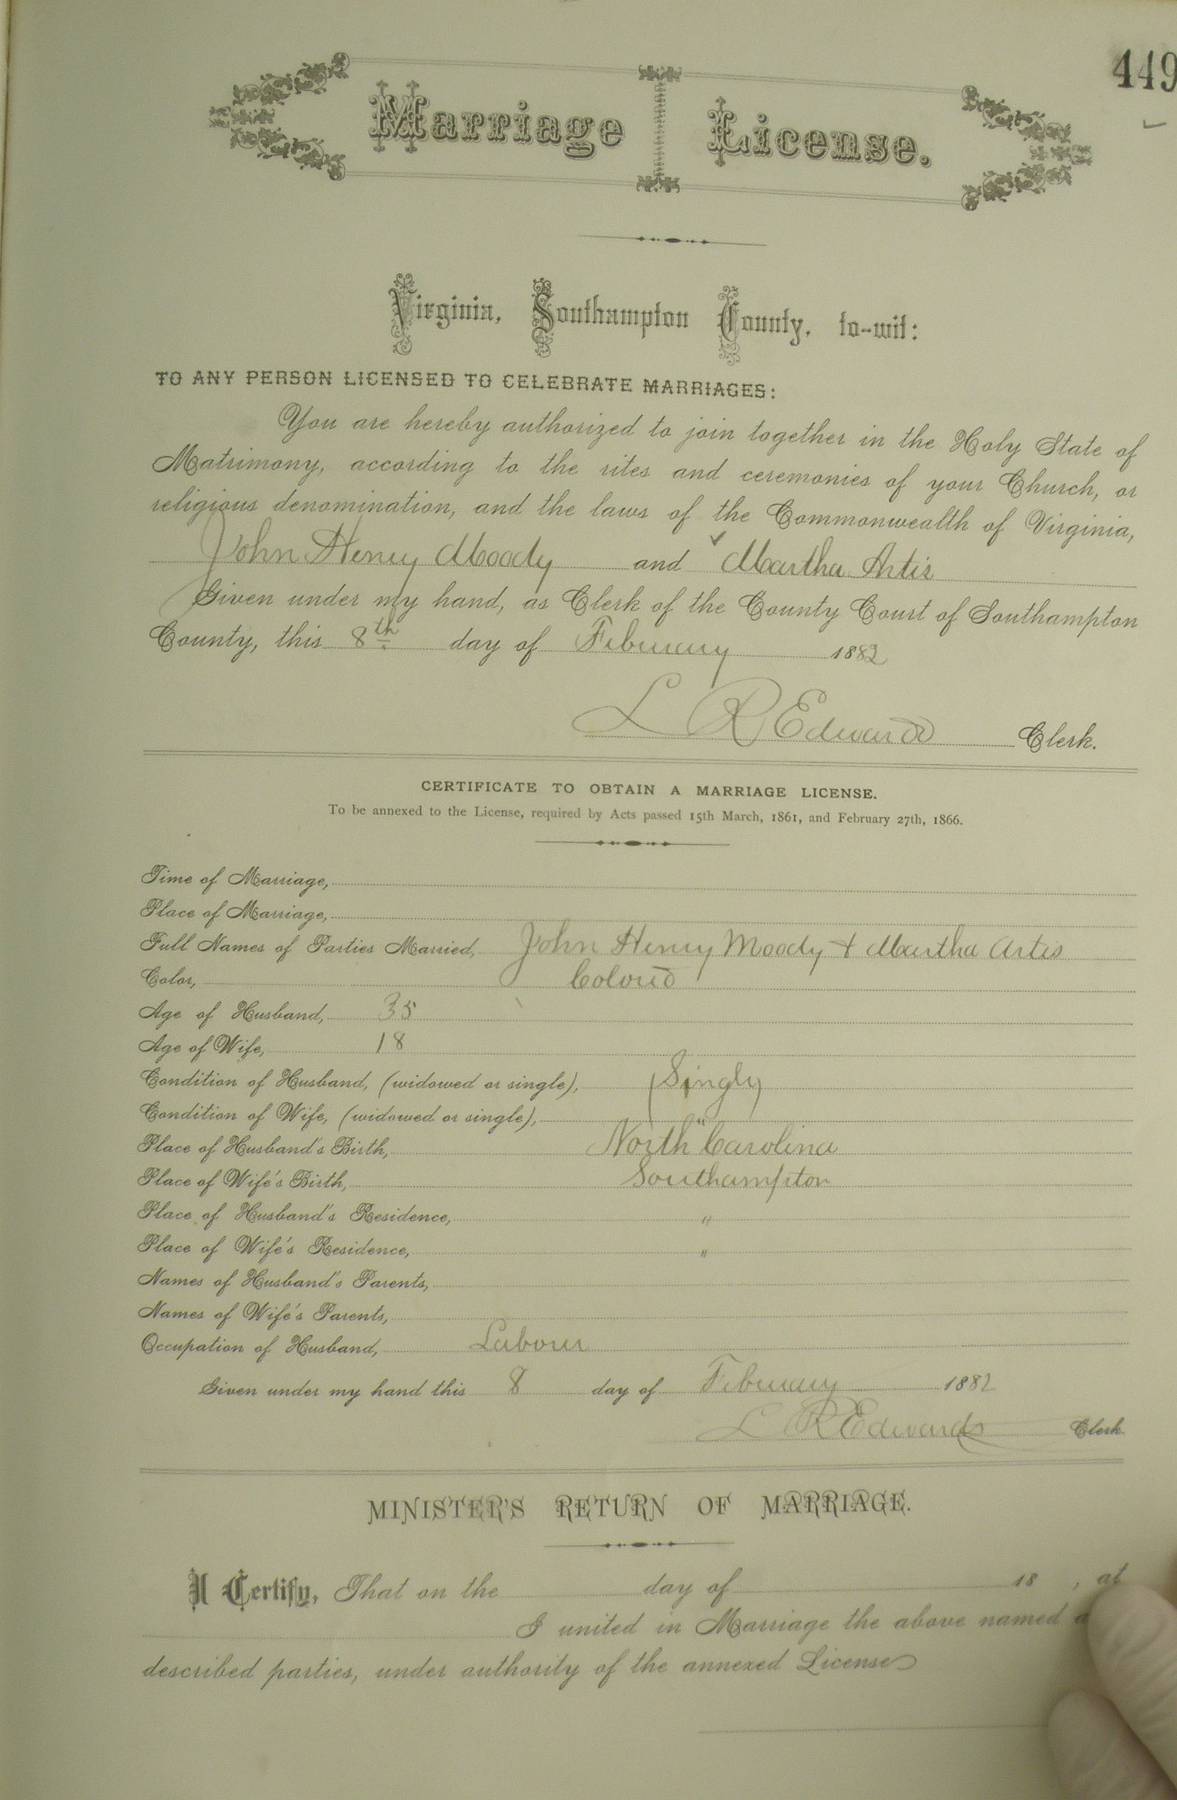 449
Marriage License.
Virginia, Southampton County, to-wit:
TO ANY PERSON LICENSED TO CELEBRATE MARRIAGES:
You are hereby authorized to join together in the Holy State of
Matrimony, according to the rites and ceremonies of your Church, or
religious denomination, and the laws of the Commonwealth of Virginia,
John Henry Moody and Martha Artis
Given under my hand, as Clerk of the County Court of Southampton
County, this 8th day of February 1882
L R Edwards Clerk.
CERTIFICATE TO OBTAIN A MARRIAGE LICENSE.
To be annexed to the License, required by Acts passed 15th March, 1861, and February 27th, 1866.
Time of Marriage,
Place of Marriage,
Full Names of Parties Married, John Henry Moody + Martha Artis
Color, Colored
Age of Husband, 35
Age of Wife, 18
Condition of Husband, (widowed or single), Singly
Condition of Wife, (widowed or single), "
Place of Husband's Birth, North Carolina
Place of Wife's Birth, Southampton
Place of Husband's Residence, "
Place of Wife's Residence, "
Names of Husband's Parents,
Names of Wife's Parents,
Occupation of Husband, Labour
Given under my hand this 8 day of February 1882
L R Edwards Clerk
MINISTER'S RETURN OF MARRIAGE.
I Certify, That on the day of 18 , at
I united in Marriage the above named
described parties, under authority of the annexed License